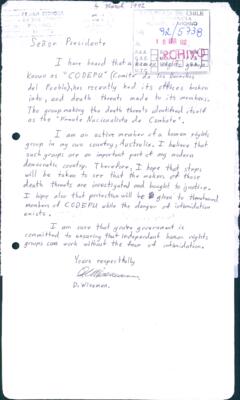 4 March 1992
CHILE
92/5938
ARCHIVO
Señor Presidente
I have heard that a human rights group
known as "CODEPU" (Comite de los Derechos
del Pueblo), has recently had its offices broken
into, and death threats made to its members.
The group making the death threats identified itself
as the "Frente Nacionalista de Combate".
I am an active member of a human rights
group in my own country, Australia. I believe that
such groups are an important part of any modern
democratic country. Therefore, I hope that steps
will be taken to see that the makers of these
death threats are investigated and bought to justice.
I hope also that protection will be given to threatened
members of CODEPU while the danger of intimidation
exists.
I am sure that your government is
committed to ensuring that independent human rights
groups can work without the fear of intimidation.
Yours respectfully
D. Wiseman.